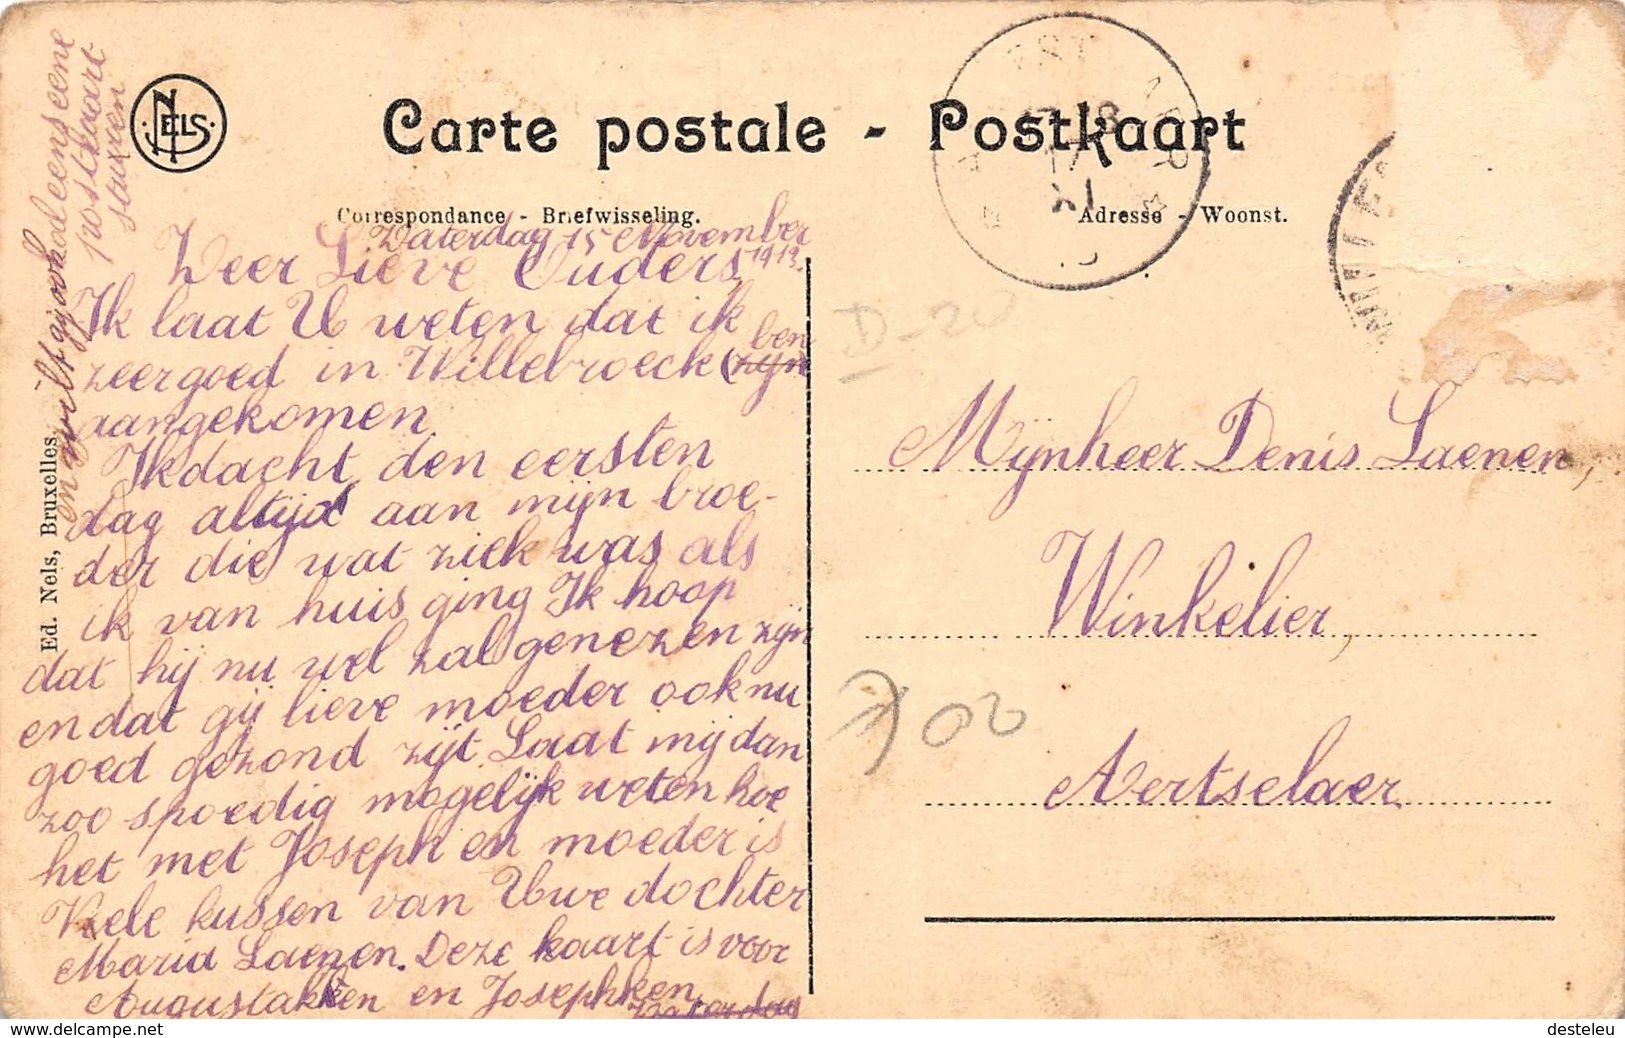 Carte postale - Postkaart
NELS
Correspondance - Briefwisseling.
Adresse - Woonst.
Zaterdag 15 November
1913.
Zeer Lieve Ouders,
Ik laat U weten dat ik
ben
zeergoed in Willebroeck (zijn
aangekomen.
Ikdacht den eersten
dag altijd aan mijn broe-
der die wat ziek was als
ik van huis ging Ik hoop
dat hij nu wel zal genezen zijn
en dat gij lieve moeder ook nu
goed gezond zijt. Laat mij dan
zoo spoedig mogelijk weten hoe
het met Joseph en moeder is
Vele kussen van Uwe dochter
Maria Laenen. Deze kaart is voor
Augustakken en Josephken
Zaterdag
en wilt gij ook eens eene
postkaart
sturen
Ed. Nels, Bruxelles.
D-20
700
Mijnheer Denis Laenen,
Winkelier,
Aertselaer
17
XI
desteleu